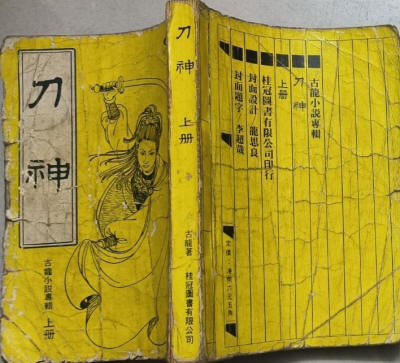 刀神
古龍小説專輯 上册
刀神 上册
古龍著 桂冠圖書有限公司
古龍小説專輯
刀神
上册
桂冠圖書有限公司印行
封面設計 龍思良
封面題字 李超哉
定價：港幣六元五角